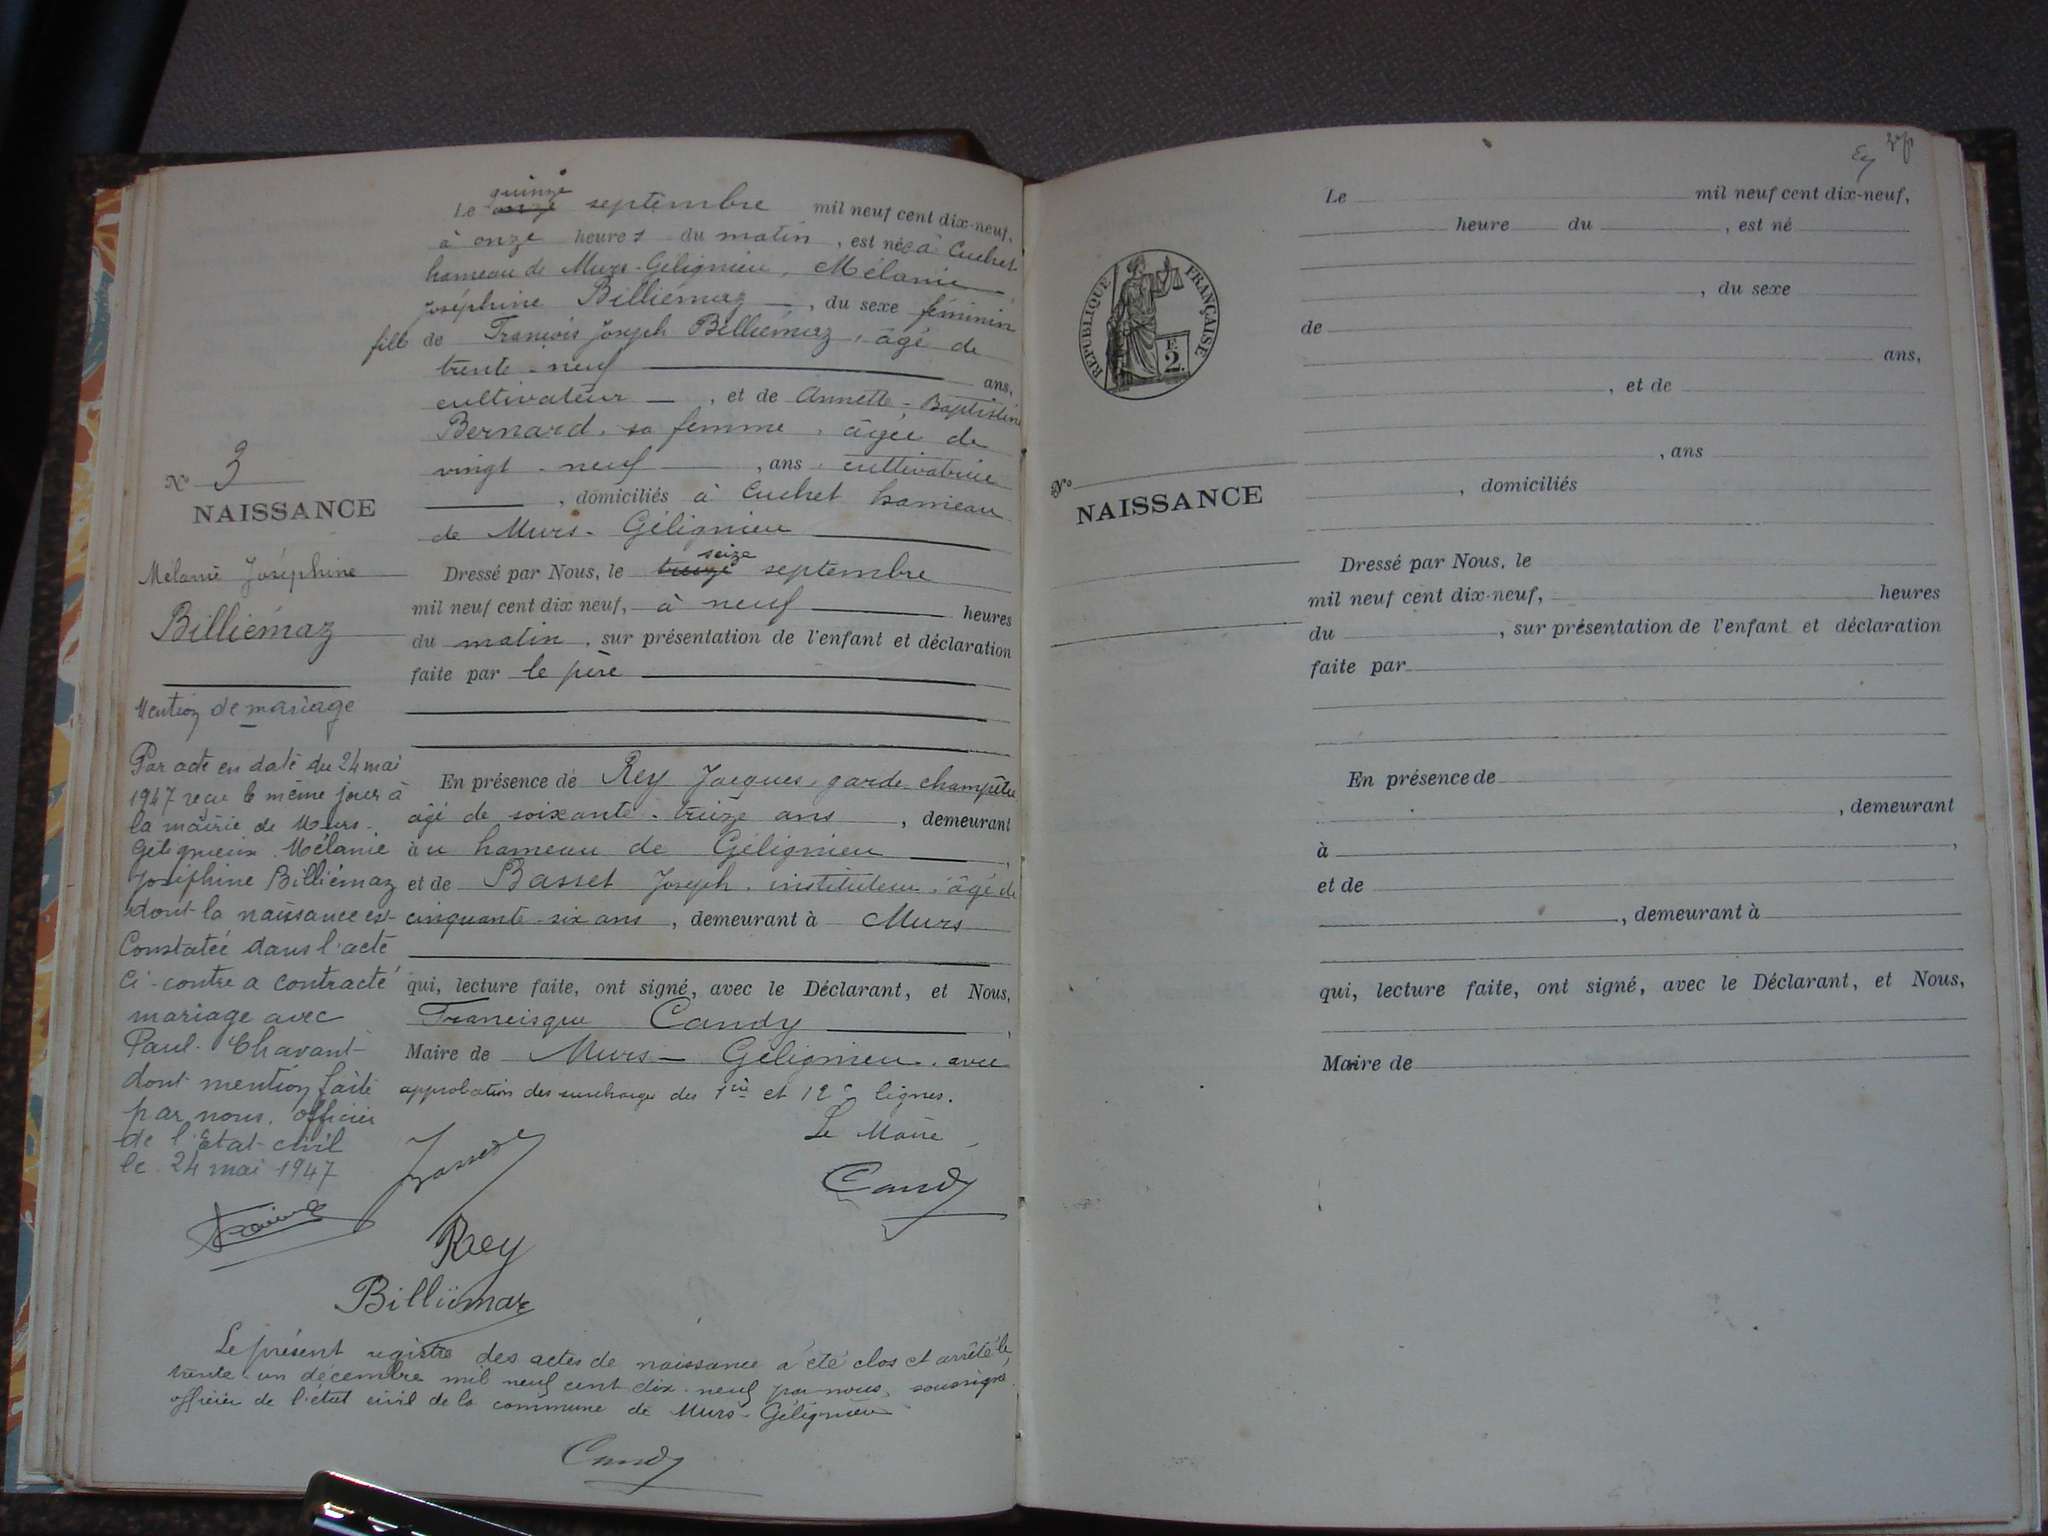 Le onze quinze septembre mil neuf cent dix-neuf,
à onze heures du matin, est née à Cuchet
hameau de Murs-Gélignieu, Mélanie
Joséphine Billiémaz —, du sexe féminin
fille de François Joseph Billiémaz, âgé de
trente-neuf ans,
cultivateur —, et de Annette-Baptistine
Bernard, sa femme, âgée de
vingt-neuf —, ans, cultivatrice
, domiciliés à Cuchet hameau
de Murs-Gélignieu
N° 3
NAISSANCE
Mélanie Joséphine
Billiémaz
Mention de mariage
Par acte en date du 24 mai
1947 reçu le même jour à
la mairie de Murs-
Gélignieux Mélanie
Joséphine Billiémaz
dont la naissance est
constatée dans l'acte
ci-contre a contracté
mariage avec
Paul Chavant
dont mention faite
par nous, officier
de l'Etat-civil
le 24 mai 1947
Dressé par Nous, le treize seize septembre
mil neuf cent dix neuf, à neuf heures
du matin, sur présentation de l'enfant et déclaration
faite par le père
En présence de Rey Jacques, garde champêtre
âgé de soixante-treize ans, demeurant
au hameau de Gélignieu,
et de Basset Joseph, instituteur, âgé de
cinquante-six ans, demeurant à Murs
qui, lecture faite, ont signé, avec le Déclarant, et Nous,
Francisque Candy,
Maire de Murs-Gélignieu, avec
approbation des surcharges des 1ère et 12e lignes.
Le Maire
Candy
Basset
Rey
Billiémaz
Le présent registre des actes de naissance a été clos et arrêté le
trente-un décembre mil neuf cent dix-neuf par nous, soussigné
officier de l'état civil de la commune de Murs-Gélignieu
Candy
Le mil neuf cent dix-neuf,
heure du , est né
, du sexe
de
ans,
, et de
, ans
, domiciliés
RÉPUBLIQUE FRANÇAISE
F.
2.
N°
NAISSANCE
Dressé par Nous, le
mil neuf cent dix-neuf, heures
du , sur présentation de l'enfant et déclaration
faite par
En présence de
, demeurant
à ,
et de
, demeurant à
qui, lecture faite, ont signé, avec le Déclarant, et Nous,
Maire de